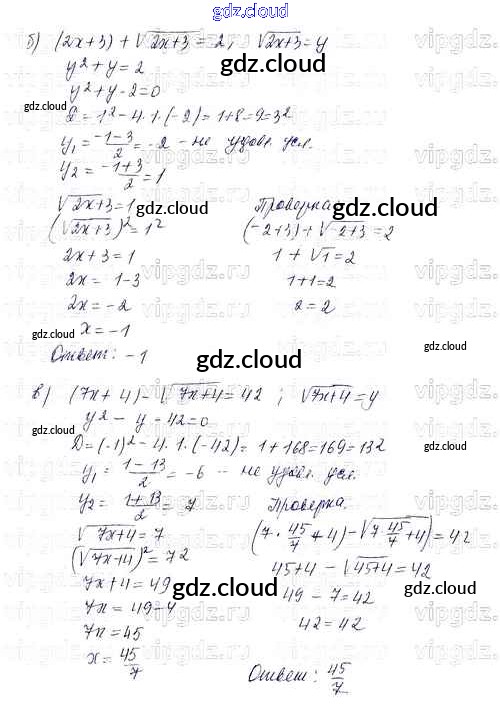 gdz.cloud
б) (2x+3) + √(2x+3) = 2, √(2x+3) = y
y² + y = 2
y² + y - 2 = 0
gdz.cloud
D = 1² - 4·1·(-2) = 1+8 = 9 = 3²
y₁ = (-1-3)/2 = -2 - не удовл. усл.
y₂ = (-1+3)/2 = 1
√(2x+3) = 1
(√(2x+3))² = 1²
2x + 3 = 1
2x = 1-3
2x = -2
x = -1
Проверка.
(-2+3) + √(-2+3) = 2
1 + √1 = 2
1+1=2
2 = 2
Ответ: -1
gdz.cloud
в) (7x+4) - √(7x+4) = 42 ; √(7x+4) = y
y² - y - 42 = 0
gdz.cloud
D = (-1)² - 4·1·(-42) = 1+168 = 169 = 13²
y₁ = (1-13)/2 = -6 - не удовл. усл.
y₂ = (1+13)/2 = 7
√(7x+4) = 7
(√(7x+4))² = 7²
7x+4 = 49
7x = 49-4
7x = 45
x = 45/7
Проверка.
(7·45/7+4) - √(7·45/7+4) = 42
45+4 - √(45+4) = 42
49 - 7 = 42
42 = 42
gdz.cloud
Ответ: 45/7
gdz.cloud
vipgdz.ru